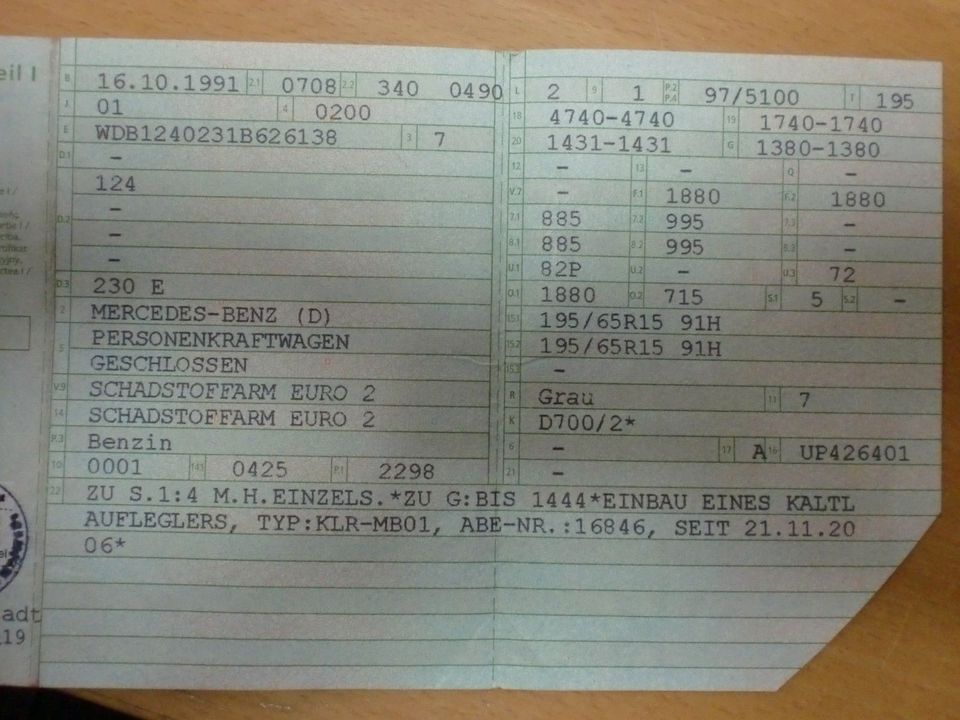 eil I
B 16.10.1991 2.1 0708 2.2 340 0490
J 01 4 0200
E WDB1240231B626138 3 7
D.1 -
124
D.2 -
-
-
D.3 230 E
2 MERCEDES-BENZ (D)
5 PERSONENKRAFTWAGEN
GESCHLOSSEN
V.9 SCHADSTOFFARM EURO 2
14 SCHADSTOFFARM EURO 2
P.3 Benzin
10 0001 14.1 0425 P.1 2298
L 2 9 1 P.2 P.4 97/5100 T 195
18 4740-4740 19 1740-1740
20 1431-1431 G 1380-1380
12 - 13 - Q -
V.7 - F.1 1880 F.2 1880
7.1 885 7.2 995 7.3 -
8.1 885 8.2 995 8.3 -
U.1 82P U.2 - U.3 72
O.1 1880 O.2 715 S.1 5 S.2 -
15.1 195/65R15 91H
15.2 195/65R15 91H
15.3 -
R Grau 11 7
K D700/2*
6 - 17 A 16 UP426401
21 -
22 ZU S.1:4 M.H.EINZELS.*ZU G:BIS 1444*EINBAU EINES KALTL
AUFLEGLERS, TYP:KLR-MB01, ABE-NR.:16846, SEIT 21.11.20
06*
adt
119